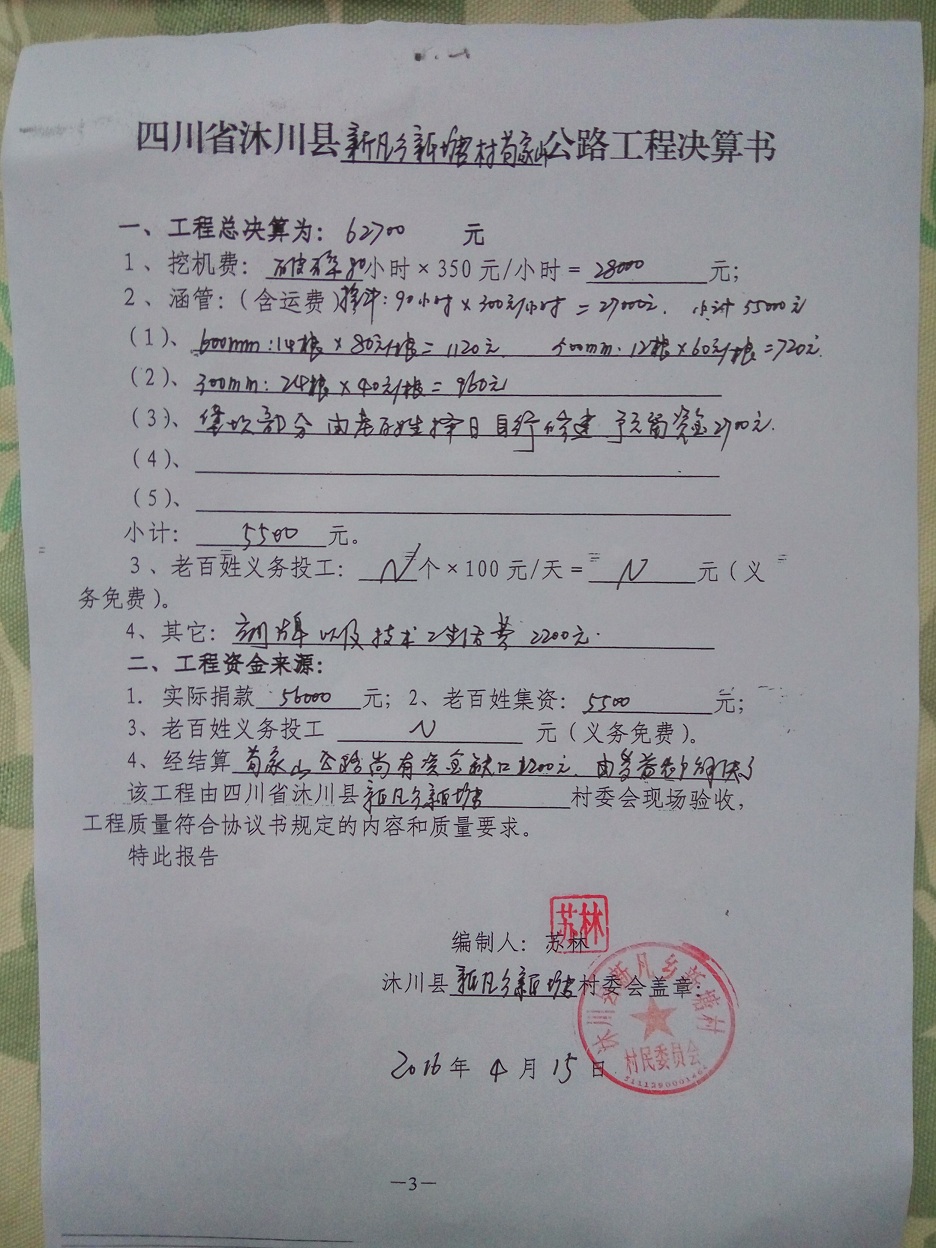 四川省沐川县新凡乡新塘村苟家山公路工程决算书
一、工程总决算为：62700 元
1、挖机费：破碎80小时×350元/小时=28000元；
2、涵管：(含运费)挖斗：90小时×300元/小时=27000元. 小计55000元
(1)、600mm：14根×80元/根=1120元 500mm：12根×60元/根=720元.
(2)、300mm：24根×40元/根=960元
(3)、堡坎部分由老百姓择日自行修建 予留资金2700元.
(4)、
(5)、
小计：5500元。
3、老百姓义务投工：N个×100元/天=N元(义
务免费)。
4、其它：牌以及技术工生活费2200元.
二、工程资金来源：
1. 实际捐款56000元；2、老百姓集资：5500元；
3、老百姓义务投工 N 元(义务免费)。
4、经结算苟家山公路尚有资金缺口1200元.由解决了
该工程由四川省沐川县新凡乡新塘村委会现场验收，
工程质量符合协议书规定的内容和质量要求。
特此报告
苏林
编制人：苏林
沐川县新凡乡新塘村委会盖章：
沐川县新凡乡新塘村
村民委员会
2016年4月15日
—3—